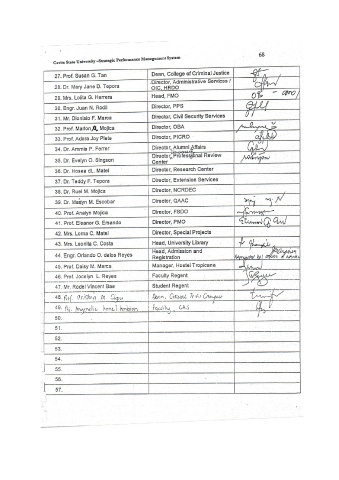 68
Cavite State University -Strategic Performance Management System
27. Prof. Susan G. Tan Dean, College of Criminal Justice
28. Dr. Mary Jane D. Tepora Director, Administrative Services / OIC, HRDO
29. Mrs. Lolita G. Herrera Head, FMO
30. Engr. Juan N. Rodil Director, PPS
31. Mr. Dionido F. Maroe Director, Civil Security Services
32. Prof. Marlon A. Mojica Director, OBA
33. Prof. Adora Joy Plete Director, PICRO
34. Dr. Ammie P. Ferrer Director, Alumni Affairs
35. Dr. Evelyn O. Singson Director, Professional Review Center
36. Dr. Hosea dL. Matel Director, Research Center
37. Dr. Teddy F. Tepora Director, Extension Services
38. Dr. Ruel M. Mojica Director, NCRDEC
39. Dr. M. Escobar Director, QAAC
40. Prof. Analyn Mojica Director, FSDO
41. Prof. Eleanor G. Ernando Director, PMO
42. Mrs. Lorna C. Matel Director, Special Projects
43. Mrs. Leonila C. Costa Head, University Library
44. Engr. Orlando O. delos Reyes Head, Admission and Registration
45. Prof. Daisy M. Marca Manager, Hostel Tropicana
46. Prof. Jocelyn L. Reyes Faculty Regent
47. Mr. Rodel Vincent Bae Student Regent
48. Prof. Cristina M. Dean, Campus
49. Faculty, CAS
50.
51.
52.
53.
54.
55.
56.
57.